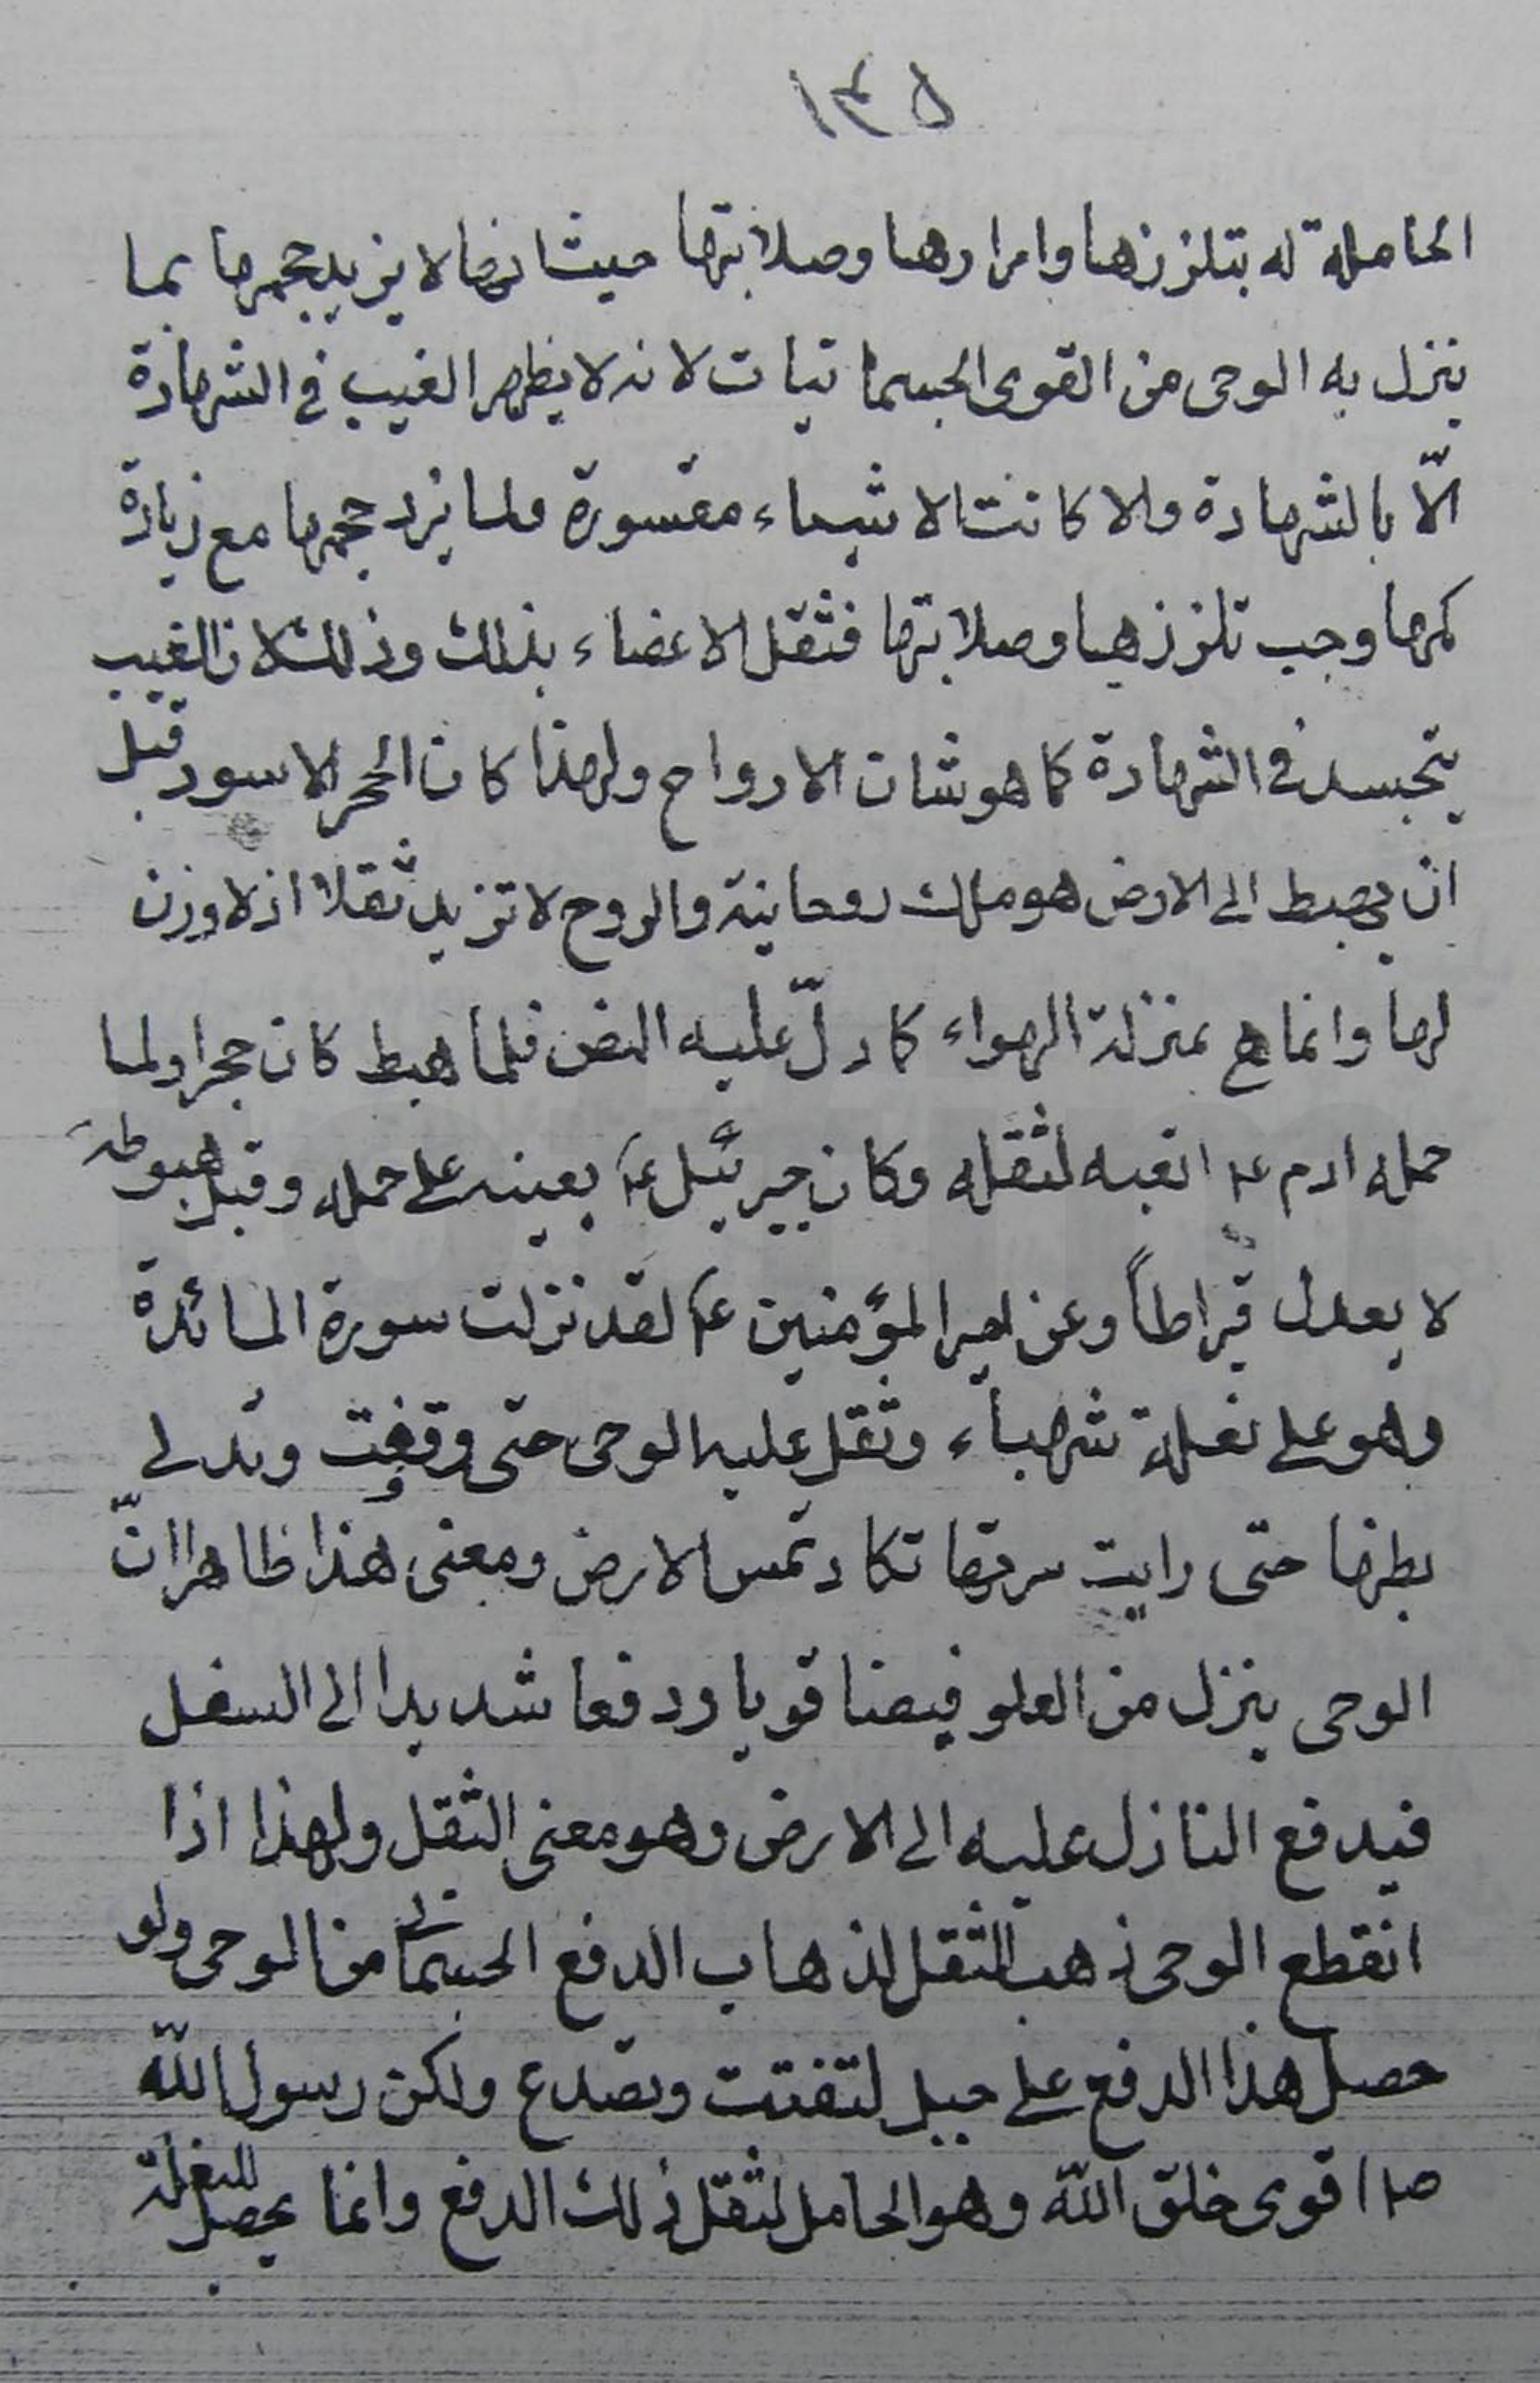 ١٣٥
الحاملة له بتلززها وامرارها وصلابتها حيث انها لا يزيد حجمها بما
ينزل به الوحى من القوى الجسمانيات لانه لا يظهر الغيب فى الشهادة
الّا بالشهادة والا كانت الاشياء مقسورة ولما يزد حجمها مع زيادة
كمها وجب تلززها وصلابتها فثقل الاعضاء بذلك وذلك لان الغيب
يتجسد فى الشهادة كما هو شان الارواح ولهذا كان الحجر الاسود قبل
ان يهبط الى الارض هو ملك روحانية والروح لا تزيد ثقلا اذ لا وزن
لها وانما هى بمنزلة الهواء كما دلّ عليه النص فلما هبط كان حجرا ولما
حمله ادم ع اتعبه لثقله وكان جبرئيل ع يعينه على حمله وقبل هبوطه
لا يعدل قيراطاً وعن امير المؤمنين ع لقد نزلت سورة المائدة
وهو على بغلة شهباء وثقل عليه الوحى حتى وقفت وتدلى
بطنها حتى رايت سرتها تكاد تمس الارض ومعنى هذا ظاهرا انّ
الوحى ينزل من العلو فيضا قويا ودفعا شديدا الى السفل
فيدفع النازل عليه الى الارض وهو معنى الثقل ولهذا اذا
انقطع الوحى ذهب الثقل لذهاب الدفع الجسمانى من الوحى ولو
حصل هذا الدفع على جبل لتفتت وتصدع ولكن رسول اللّه
ص اقوى خلق اللّه وهو الحامل لثقل ذلك الدفع وانما يحصل للبغلة